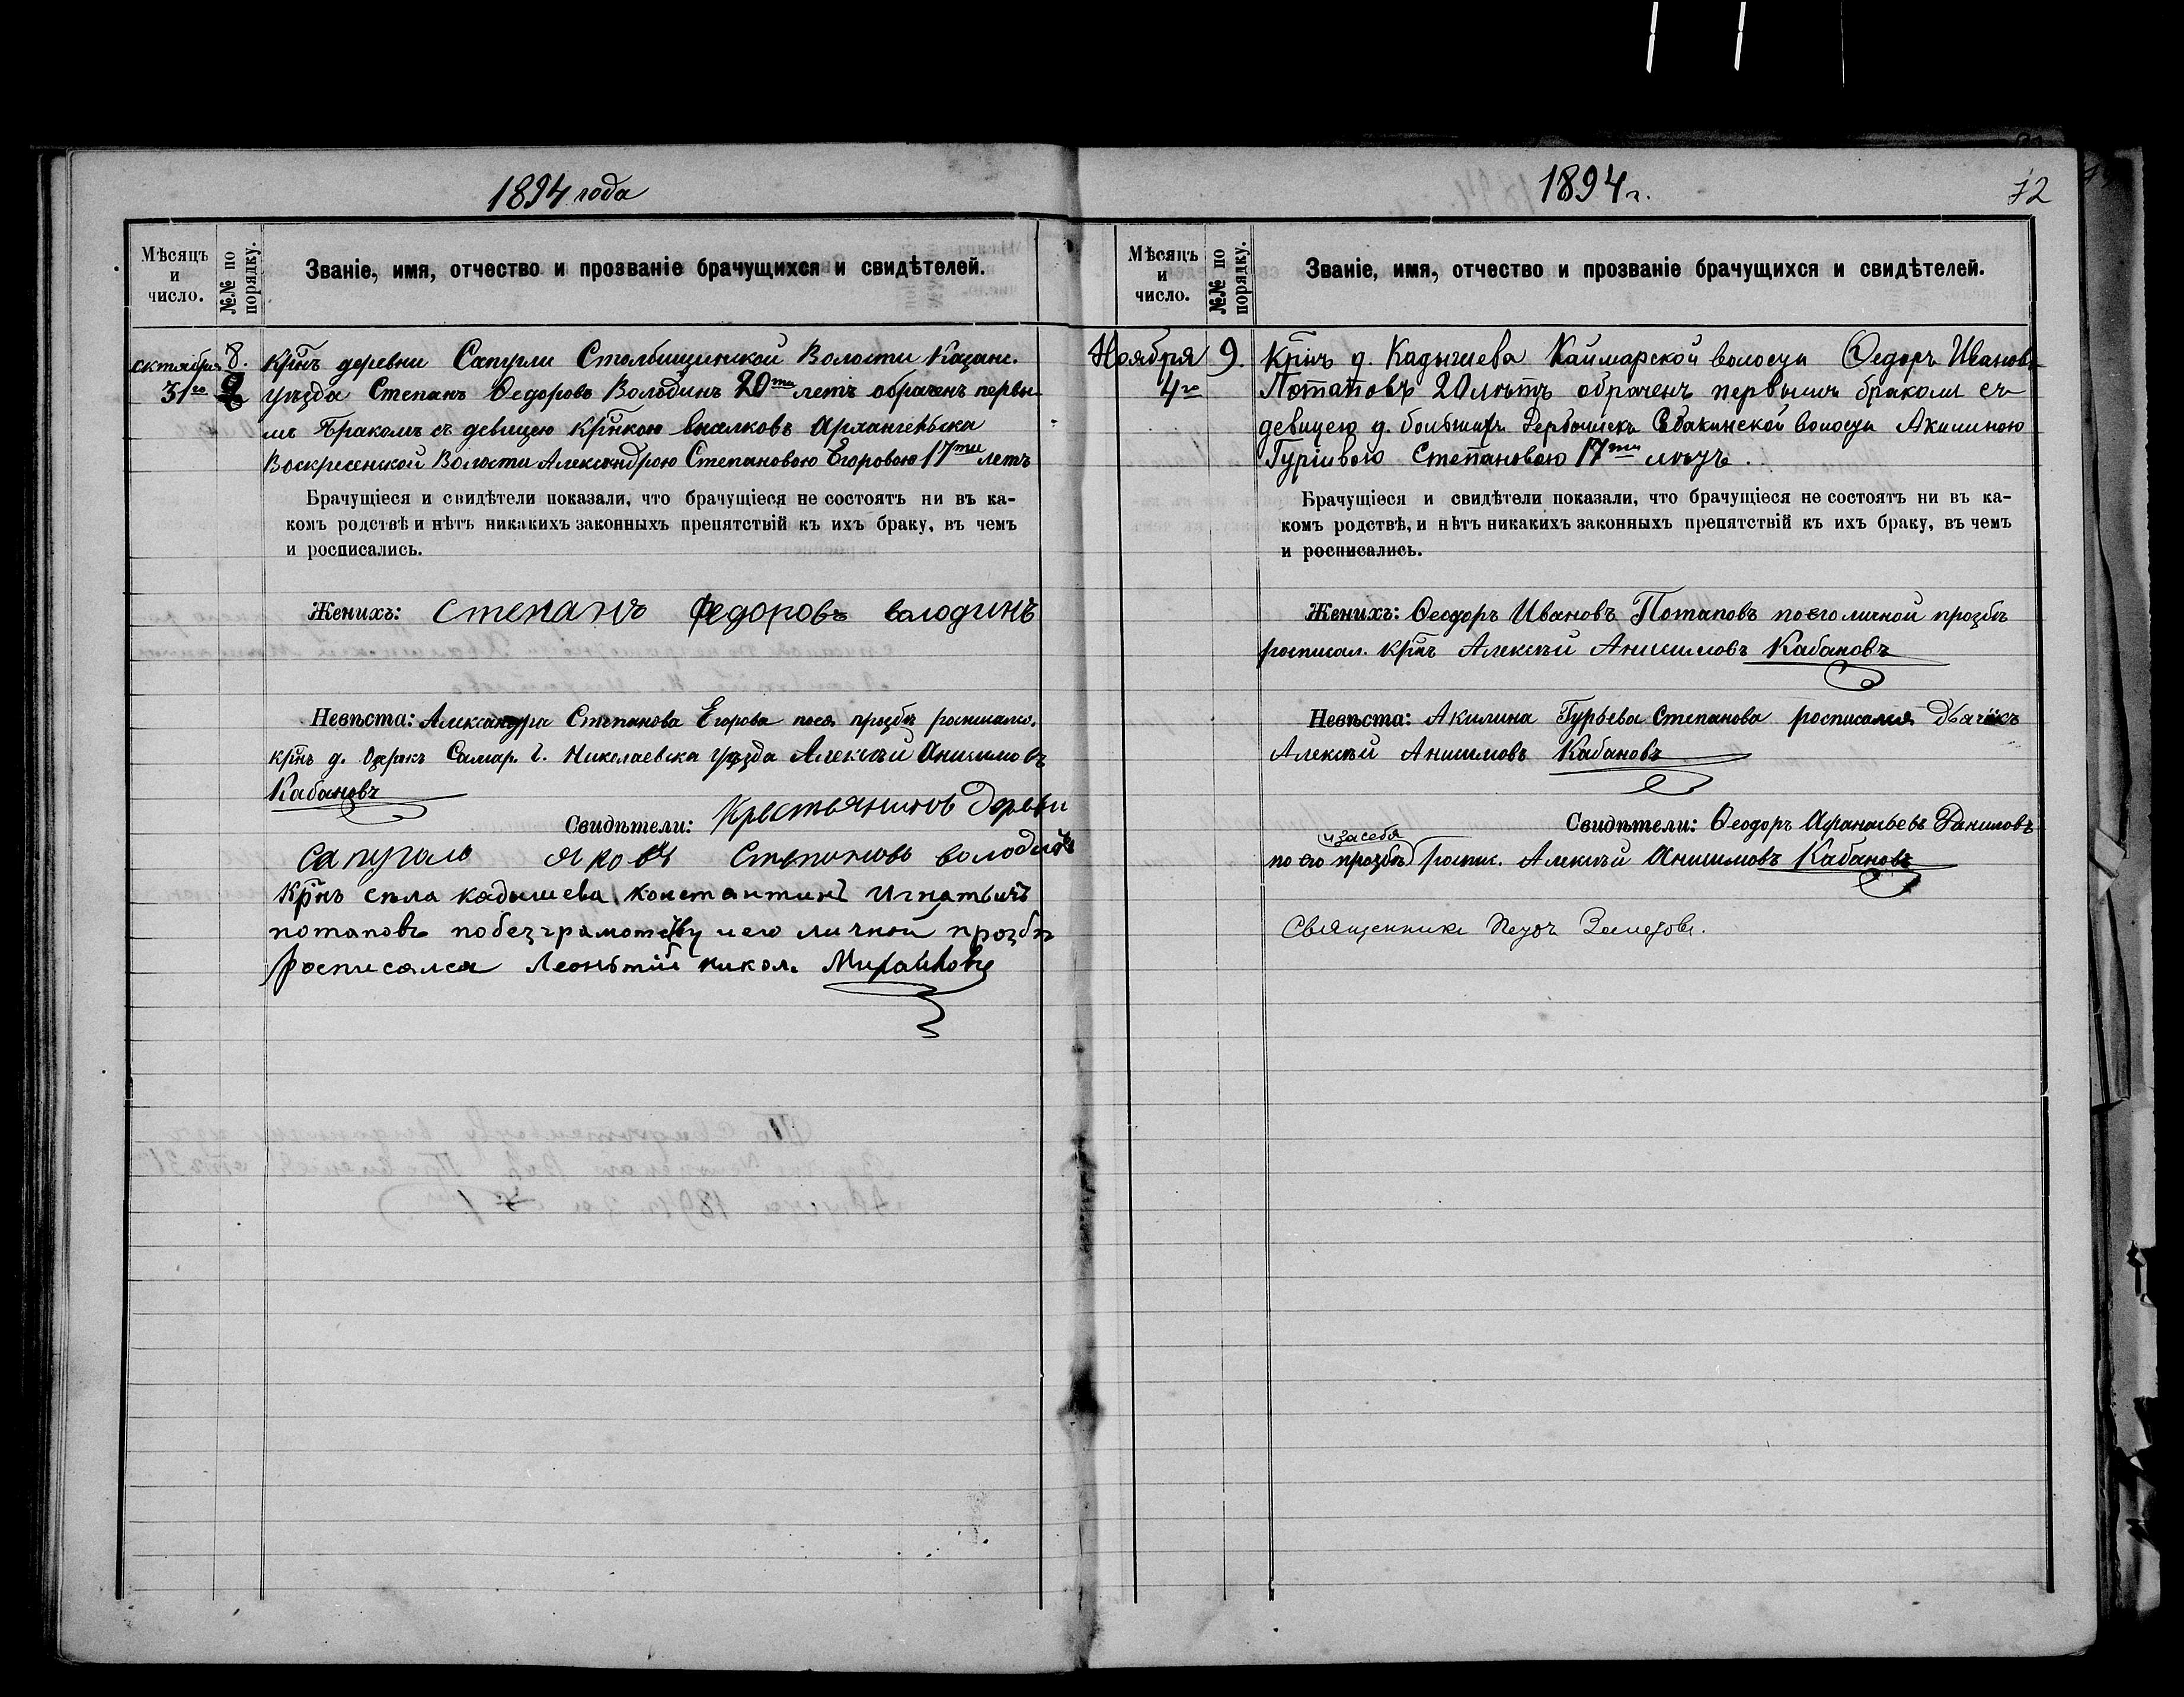 1894 года
Мѣсяцъ
и
число.
№№ по
порядку.
Званіе, имя, отчество и прозваніе брачущихся и свидѣтелей.
октября 8. Крнъ деревни Сапугли Столбищинской Волости Казанс.
31го уѣзда Степанъ Ѳедоровъ Володинъ 20ти летъ обраченъ первы-
мъ бракомъ съ девицею крнкою Архангельска
Воскресенской Волости Александрою Степановою Егоровою 17ти летъ
Брачущіеся и свидѣтели показали, что брачущіеся не состоятъ ни въ ка-
комъ родствѣ и нѣтъ никакихъ законныхъ препятствій къ ихъ браку, въ чемъ
и росписались.
Женихъ: Степанъ Федоровъ володинъ
Невѣста: Александра Степанова Егорова прозбѣ
крнъ д. Самар. г. Николаевска уѣзда Алексѣй Анисимовъ
Кабановъ
Свидѣтели: Крестьянинов
Яковъ Степановъ володинъ
Крнъ села кадышева константинъ Игнатьичъ
потаповъ по безграмотству и его личной прозбѣ
росписался Леонътій никол. Михаиловъ
1894 г.
72
Мѣсяцъ
и
число.
№№ по
порядку.
Званіе, имя, отчество и прозваніе брачущихся и свидѣтелей.
Ноября 9. Крнъ д. Кадышева Каймарской волости Ѳедоръ Ивановъ
4го Потаповъ 20 лѣтъ обраченъ первымъ бракомъ съ
девицею д. большихъ волости Акилиною
Гуріивою Степановою 17ти лѣтъ.
Брачущіеся и свидѣтели показали, что брачущіеся не состоятъ ни въ ка-
комъ родствѣ, и нѣтъ никакихъ законныхъ препятствій къ ихъ браку, въ чемъ
и росписались.
Женихъ: Ѳеодоръ Ивановъ Потаповъ по его личной прозбѣ
росписал. крнъ Алексѣй Анисимовъ Кабановъ
Невѣста: Акилина Гурьева Степанова росписался Дьячекъ
Алексѣй Анисимовъ Кабановъ
Свидѣтели: Ѳеодоръ Афанасьевъ Даниловъ
и за себя
по его прозбѣ роспис. Алексѣй Анисимовъ Кабановъ
Священникъ